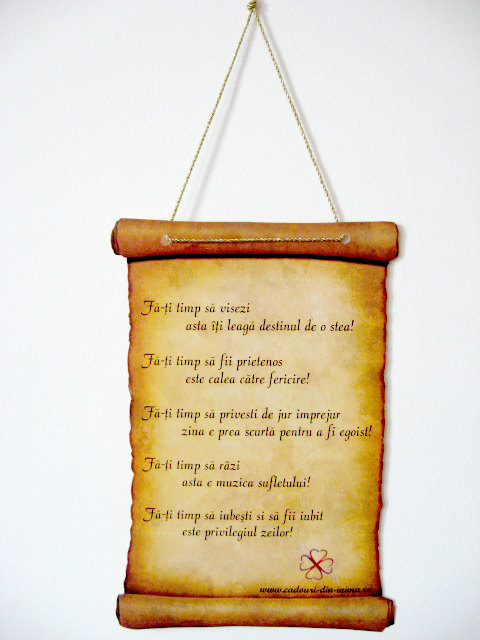 Fă-ți timp să visezi
asta îți leagă destinul de o stea!
Fă-ți timp să fii prietenos
este calea către fericire!
Fă-ți timp să privesti de jur imprejur
ziua e prea scurtă pentru a fi egoist!
Fă-ți timp să râzi
asta e muzica sufletului!
Fă-ți timp să iubești si să fii iubit
este privilegiul zeilor!
www.cadouri-din-inima.ro